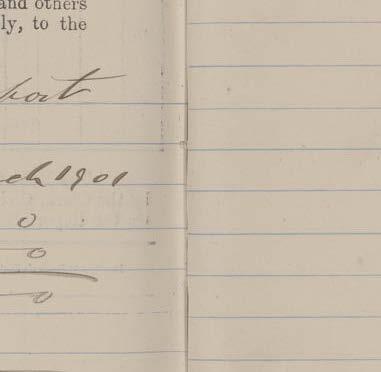 and others
ly, to the
port
ch 1901
0
0
0